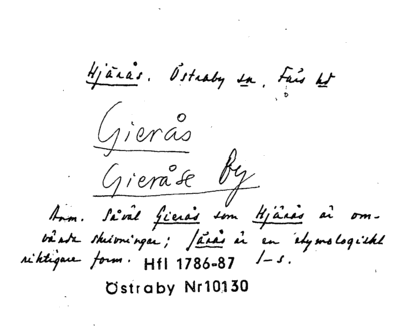 Hjärås. Östraby sn. Färs hd
Gierås
Gieråse By
Anm. Såväl Gierås som Hjärås är om-
vända skrivningar; Järås är en etymologiskt
riktigare form. Hfl 1786-87 I-s.
Östraby Nr10130